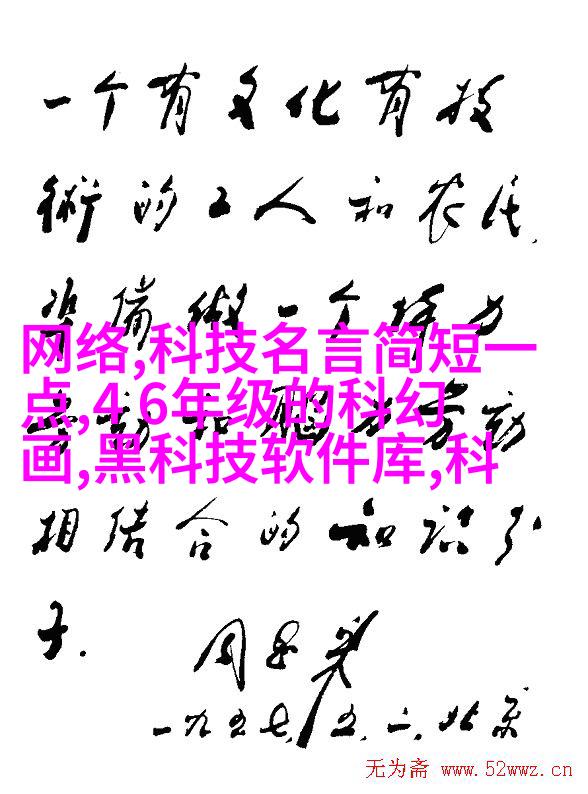 一个有文化有技
術的工人和农民,
备做一个体力
网络,科技名言简短一
点,4 6年级的科幻
劳动和腦力劳动
画,黑科技软件库,科
相结合的知识分
子.
周恩来
一九五七,五,二,北京
无为斋 www.52wwz.cn